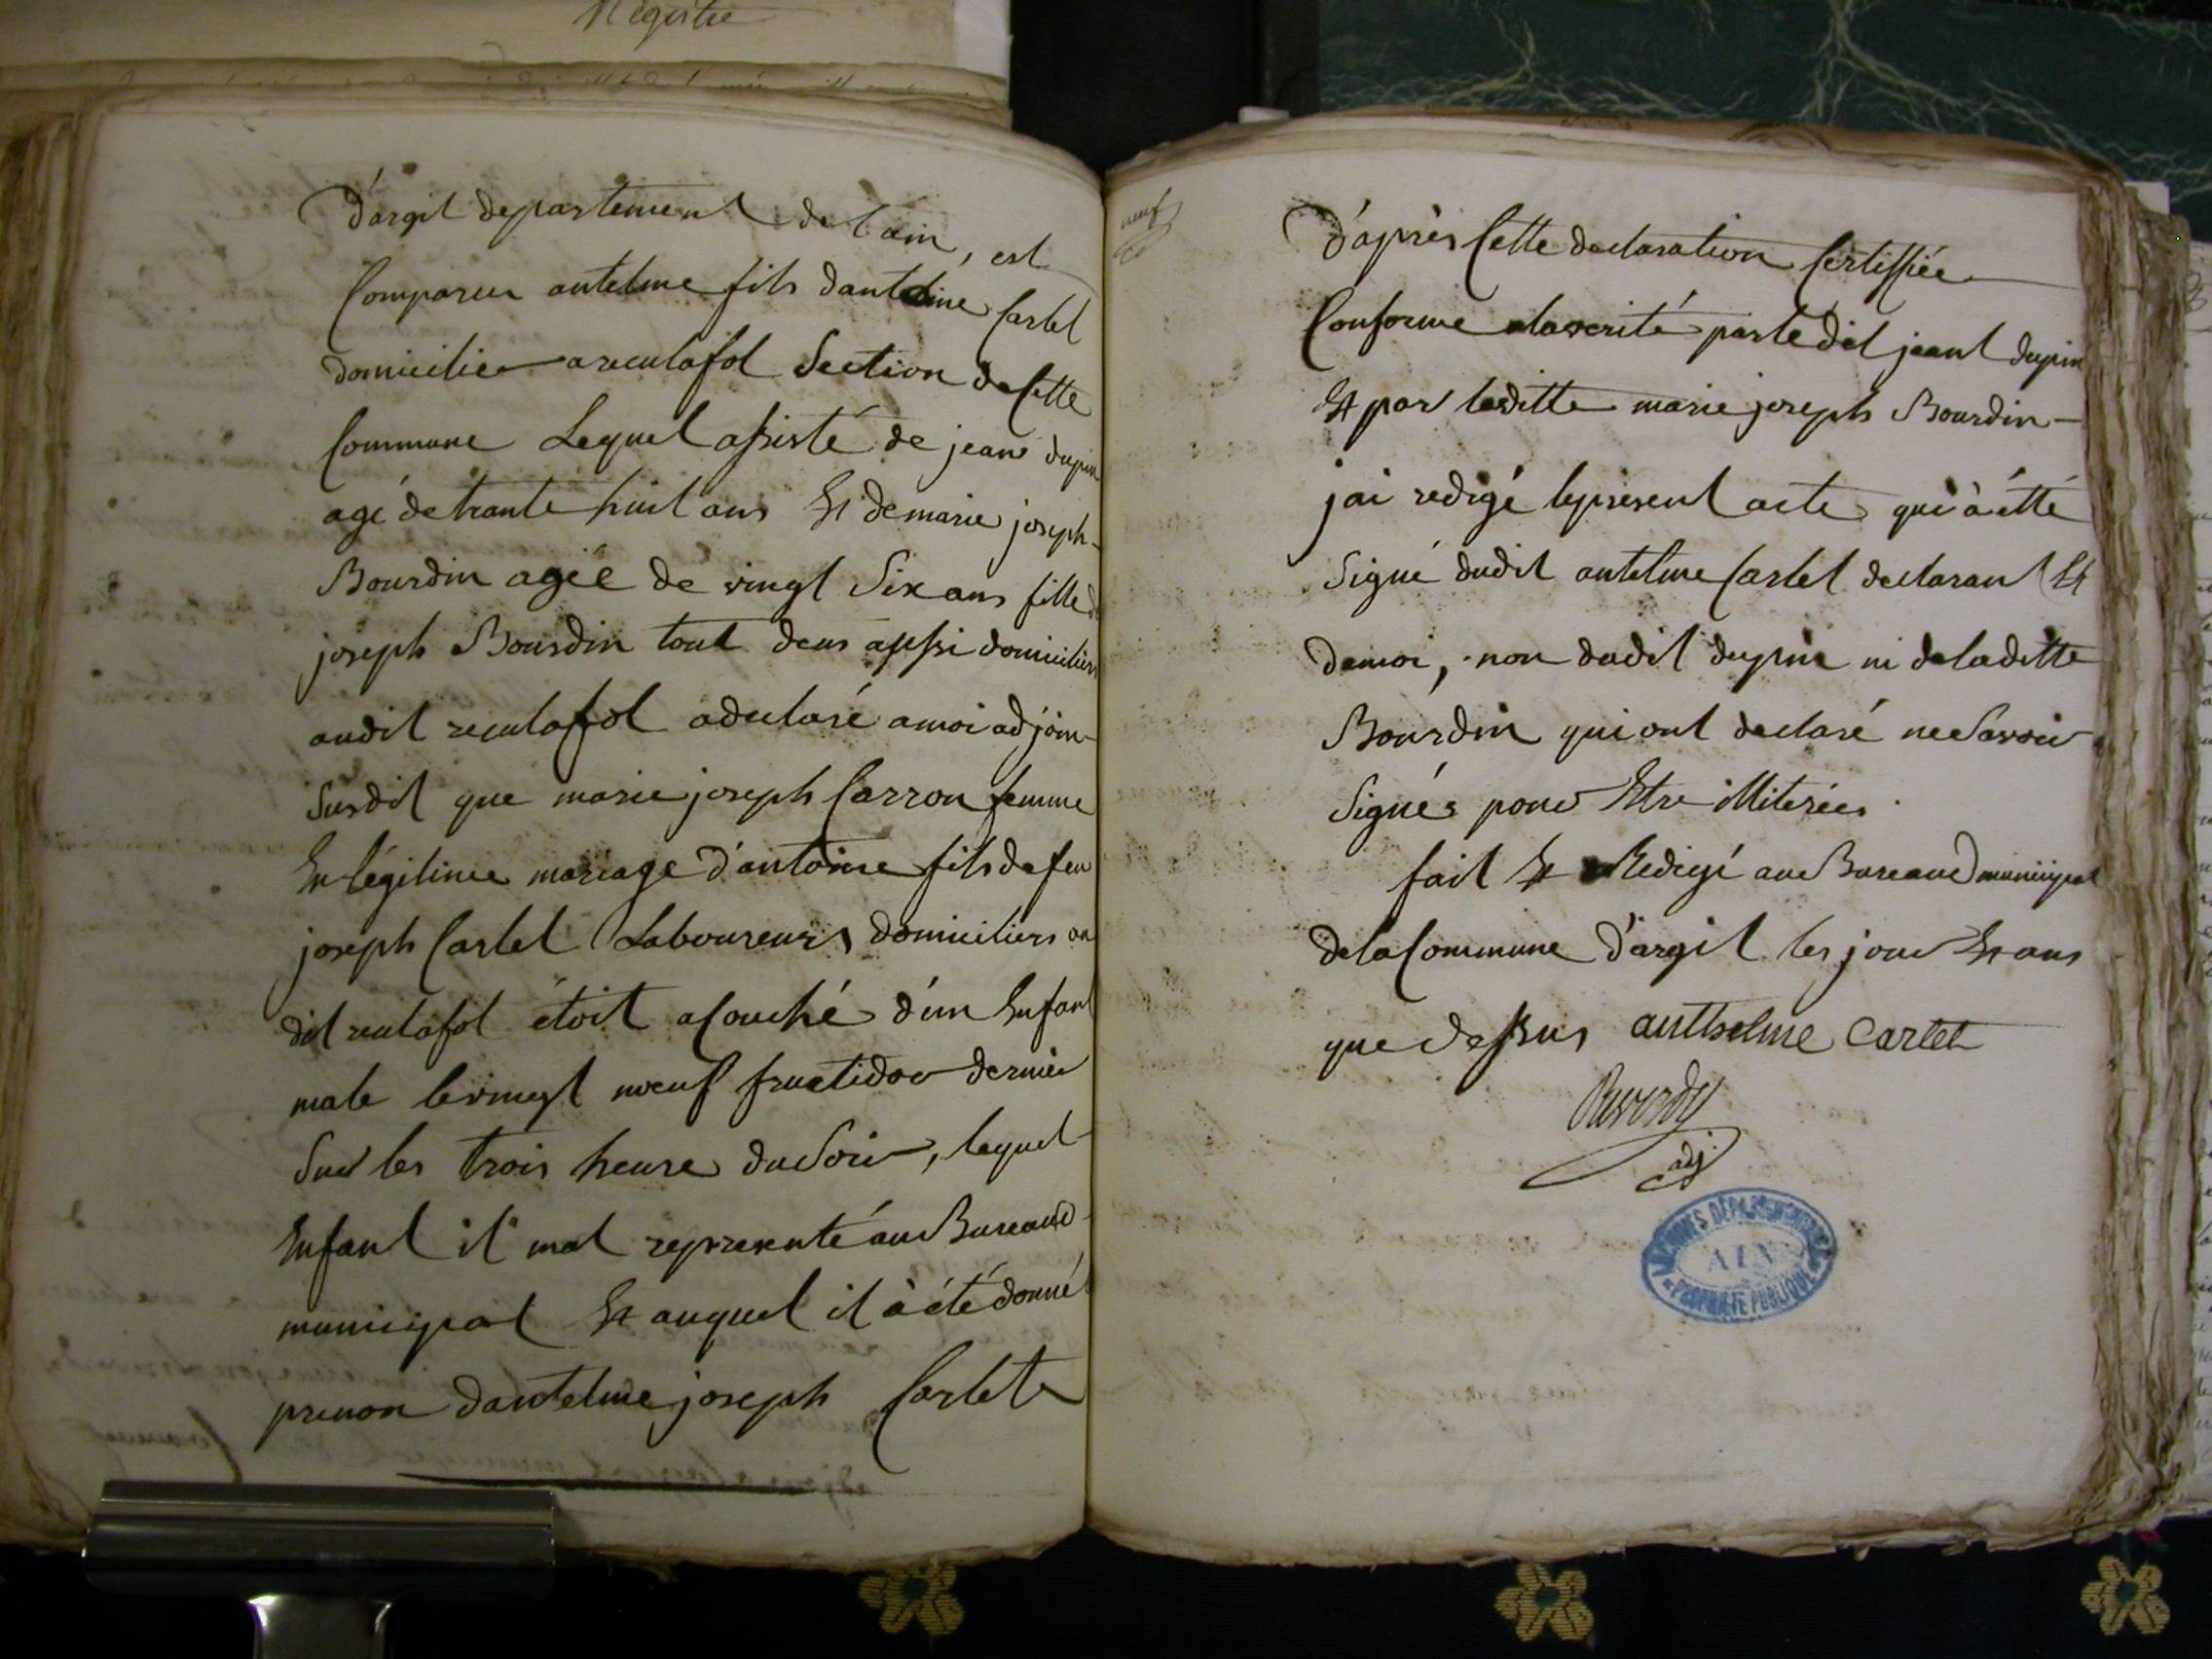 Registre
d'argit departement de l'ain, est
Comparue antelme fils dantelme Cartet
domicilier areculafol Section de Cette
Commune Lequel assisté de jean dupin
agé de trante huit ans Et de marie joseph
Bourdin agée de vingt Six ans fille de
joseph Bourdin tout deus aussi domiciliers
audit reculafol adeclaré a moi adjoin
Susdit que marie joseph Carron femme
En légitime mariage d'antoine fils de feu
joseph Cartet Laboureurs domiciliers au
dit reculafol étoit acouché d'un Enfant
male le vingt neuf fructidor dernier
Sur les trois heure du Soir, lequel
Enfant il mat representé au Bureaud
municipal Et auquel il à été donné
prenon dantelme joseph Cartet
neuf
d'après Cette declaration Certiffiée
Conforme alaverité par le dit jeant dupin
Et par laditte marie joseph Bourdin
jai redigé le present acte qui à étté
Signé dudit antelme Cartet declarant Et
de moi, non dudit dupin ni de laditte
Bourdin qui ont declaré ne Savoir
Signés pour Etre illiterées
fait Et Redigé au Bureaud municipal
de la Commune d'argit les jour Et ans
que dessus antthelme cartet
Reverdy
adj
ARCHIVES DÉPARTEMENTALES
AIN
PROPRIÉTÉ PUBLIQUE